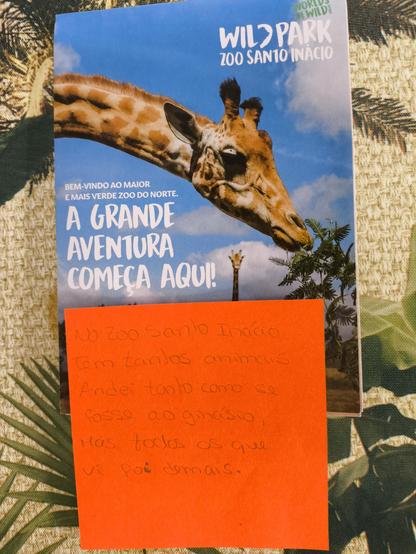 WORLDS
OF WILD!
WILD PARK
ZOO SANTO INÁCIO
BEM-VINDO AO MAIOR
E MAIS VERDE ZOO DO NORTE.
A GRANDE
AVENTURA
COMEÇA AQUI!
No Zoo Santo Inácio
Tem tantos animais
Andei tanto como se
fosse ao ginásio,
Mas todos os que
vi foi demais.